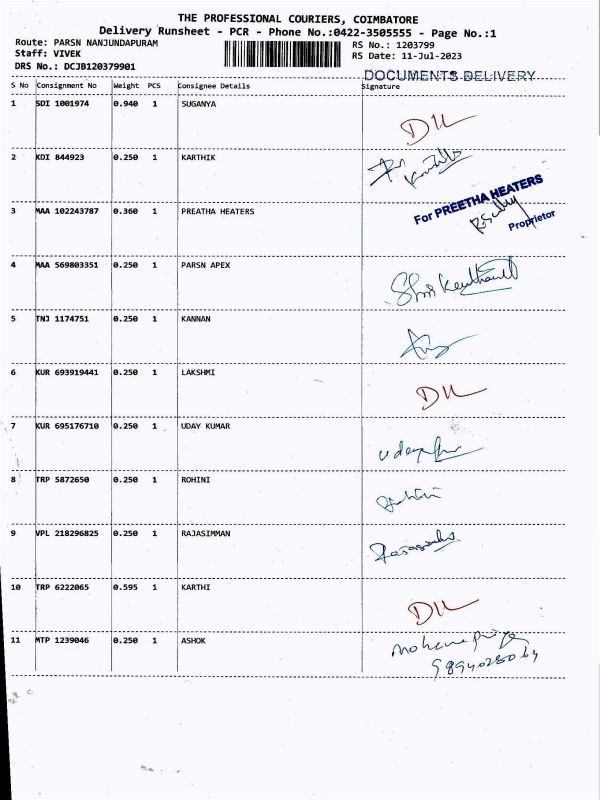 THE PROFESSIONAL COURIERS, COIMBATORE
Delivery Runsheet - PCR - Phone No.:0422-3505555 - Page No.:1
Route: PARSN NANJUNDAPURAM RS No.: 1203799
Staff: VIVEK RS Date: 11-Jul-2023
DRS No.: DCJB120379901
DOCUMENTS DELIVERY
S No Consignment No Weight PCS Consignee Details Signature
1 SDI 1001974 0.940 1 SUGANYA
2 KDI 844923 0.250 1 KARTHIK
3 MAA 102243787 0.360 1 PREATHA HEATERS
For PREETHA HEATERS
Proprietor
4 MAA 569803351 0.250 1 PARSN APEX
5 TNJ 1174751 0.250 1 KANNAN
6 KUR 693919441 0.250 1 LAKSHMI
7 KUR 695176710 0.250 1 UDAY KUMAR
8 TRP 5872650 0.250 1 ROHINI
9 VPL 218296825 0.250 1 RAJASIMMAN
10 TRP 6222065 0.595 1 KARTHI
11 MTP 1239046 0.250 1 ASHOK